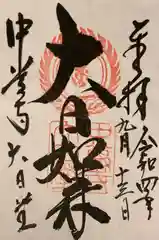 奉拝 令和四年
九月十三日
大日如来
中尊寺 大日堂